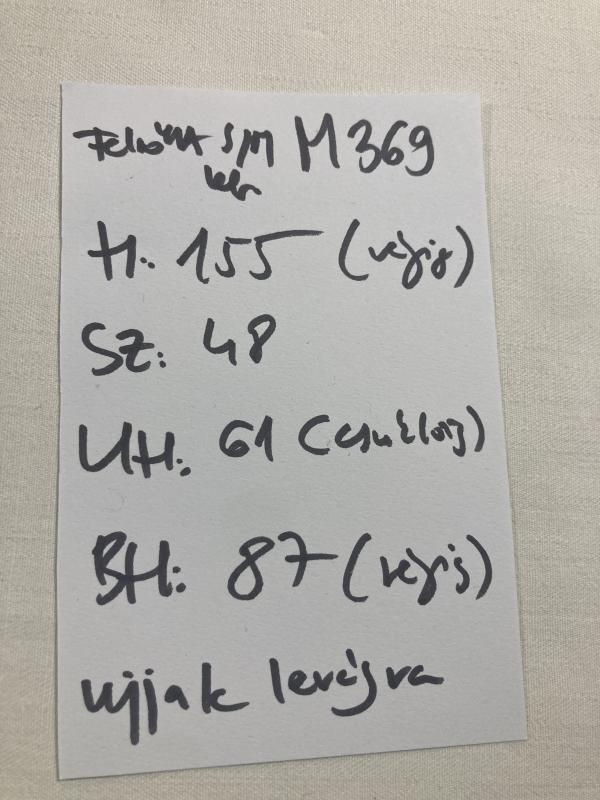 Felnőtt S/M M369
H: 155 (végig)
SZ: 48
UH: 61 (csuklóig)
BH: 87 (végig)
ujjak levágva